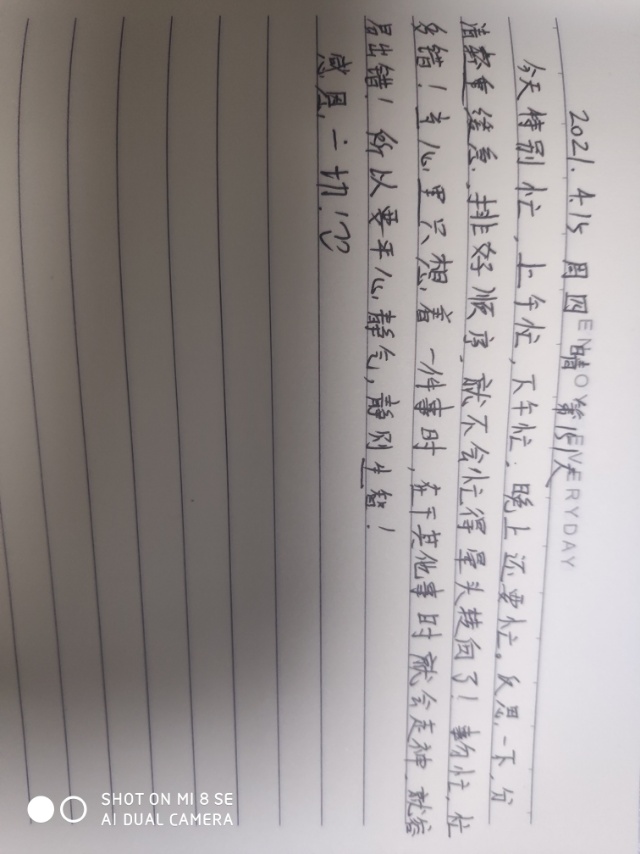 ENJOY EVERYDAY
2021.4.15 周四 晴 第15天
今天特别忙,上午忙,下午忙,晚上还要忙。反思一下,分
清轻重缓急,排好顺序,就不会忙得晕头转向了!事勿忙,忙
多错!当心里只想着一件事时,在干其他事时就会走神,就容
易出错!所以要平心静气,静则生智!
感恩一切!
SHOT ON MI 8 SE
AI DUAL CAMERA